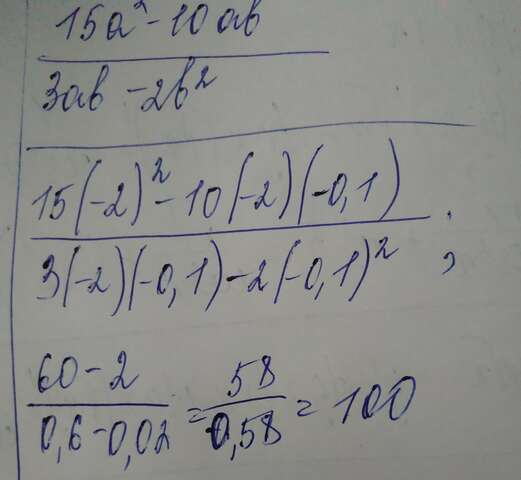 15a² - 10ab
3ab - 2b²
15(-2)² - 10(-2)(-0,1)
3(-2)(-0,1) - 2(-0,1)² ;
60 - 2
0,6 - 0,02
=
58
0,58
= 100